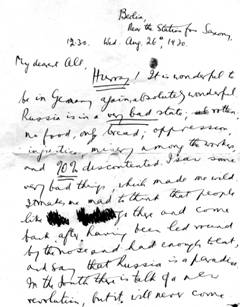 Berlin,
Near the Station for Saxony,
12.30. Wed. Aug. 26th, 1930.
My dearest All.
Hurray! It is wonderful to
be in Germany again, absolutely wonderful
Russia is in a very bad state, rotten,
no food, only bread; oppression,
injustice, misery among the workers,
and 90% discontented. I saw some
very bad things, which made me wild
It makes me mad to think that people
like go there and come
back, after having been led round
by the nose and had enough to eat,
and say that Russia is a paradise.
In the South there is talk of a new
revolution, but it will never come